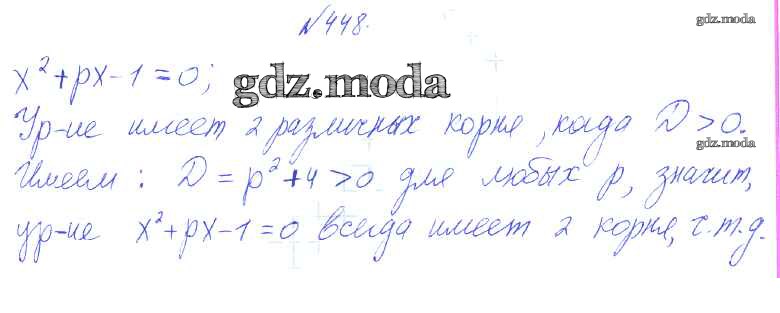 №448.
gdz.moda
x²+px-1=0;
gdz.moda
Ур-ие имеет 2 различных корня, когда D>0.
gdz.moda
Имеем: D=p²+4>0 для любых p, значит,
ур-ие x²+px-1=0 всегда имеет 2 корня, ч.т.д.